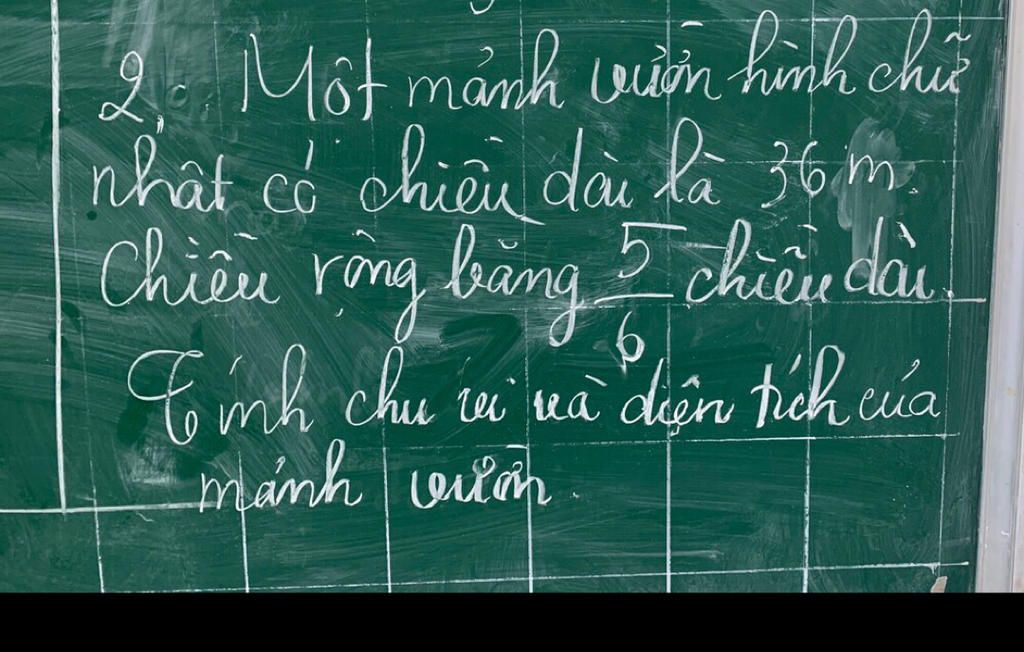 2. Một mảnh vườn hình chữ
nhật có chiều dài là 36 m.
Chiều rộng bằng 5/6 chiều dài.
Tính chu vi và diện tích của
mảnh vườn.